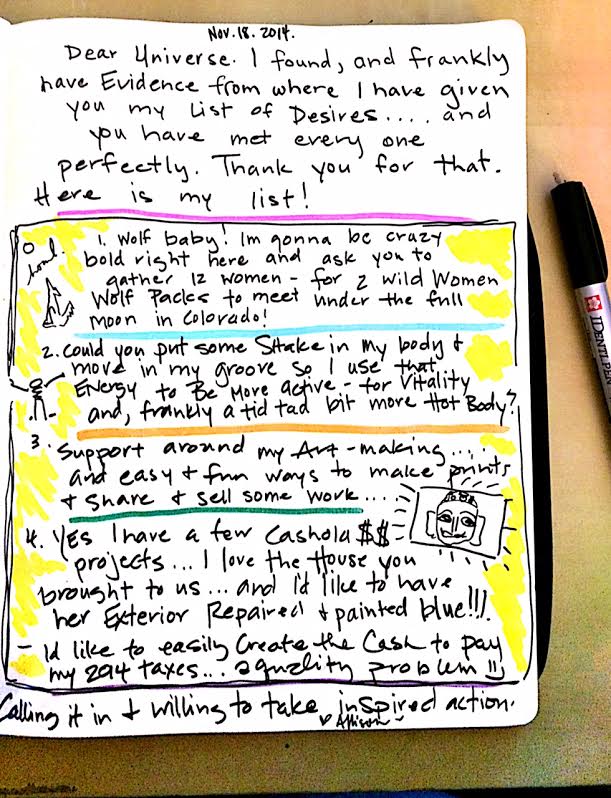 Nov. 18. 2014.
Dear Universe. I found, and frankly
have Evidence from where I have given
you my List of Desires.... and
you have met every one
perfectly. Thank you for that.
Here is my list!
howl.
1. Wolf baby! Im gonna be crazy
bold right here and ask you to
gather 12 women - for 2 Wild Women
Wolf Packs to meet under the full
moon in Colorado!
2. Could you put some Shake in my body &
move in my groove so I use that
Energy to Be More active - for Vitality
and, frankly a tid tad bit more Hot Body?
3. Support around my Art-making....
and easy & fun ways to make prints
& Share & sell some work....
4. Yes I have a few Cashola $$
projects... I love the House you
brought to us... and I'd like to have
her Exterior Repaired & painted blue!!!.
- I'd like to easily Create the Cash to pay
my 2014 taxes... a quality problem !!)
Calling it in & willing to take inspired action.
♥ Allison
IDENTI.PEN